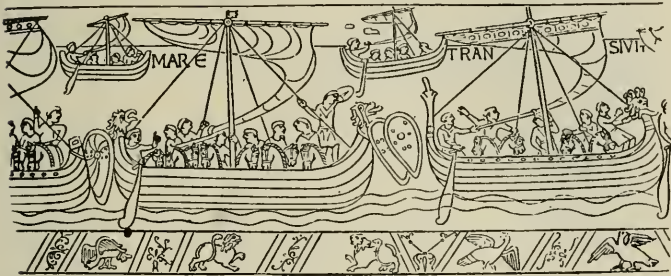 MARE TRANSIVIT